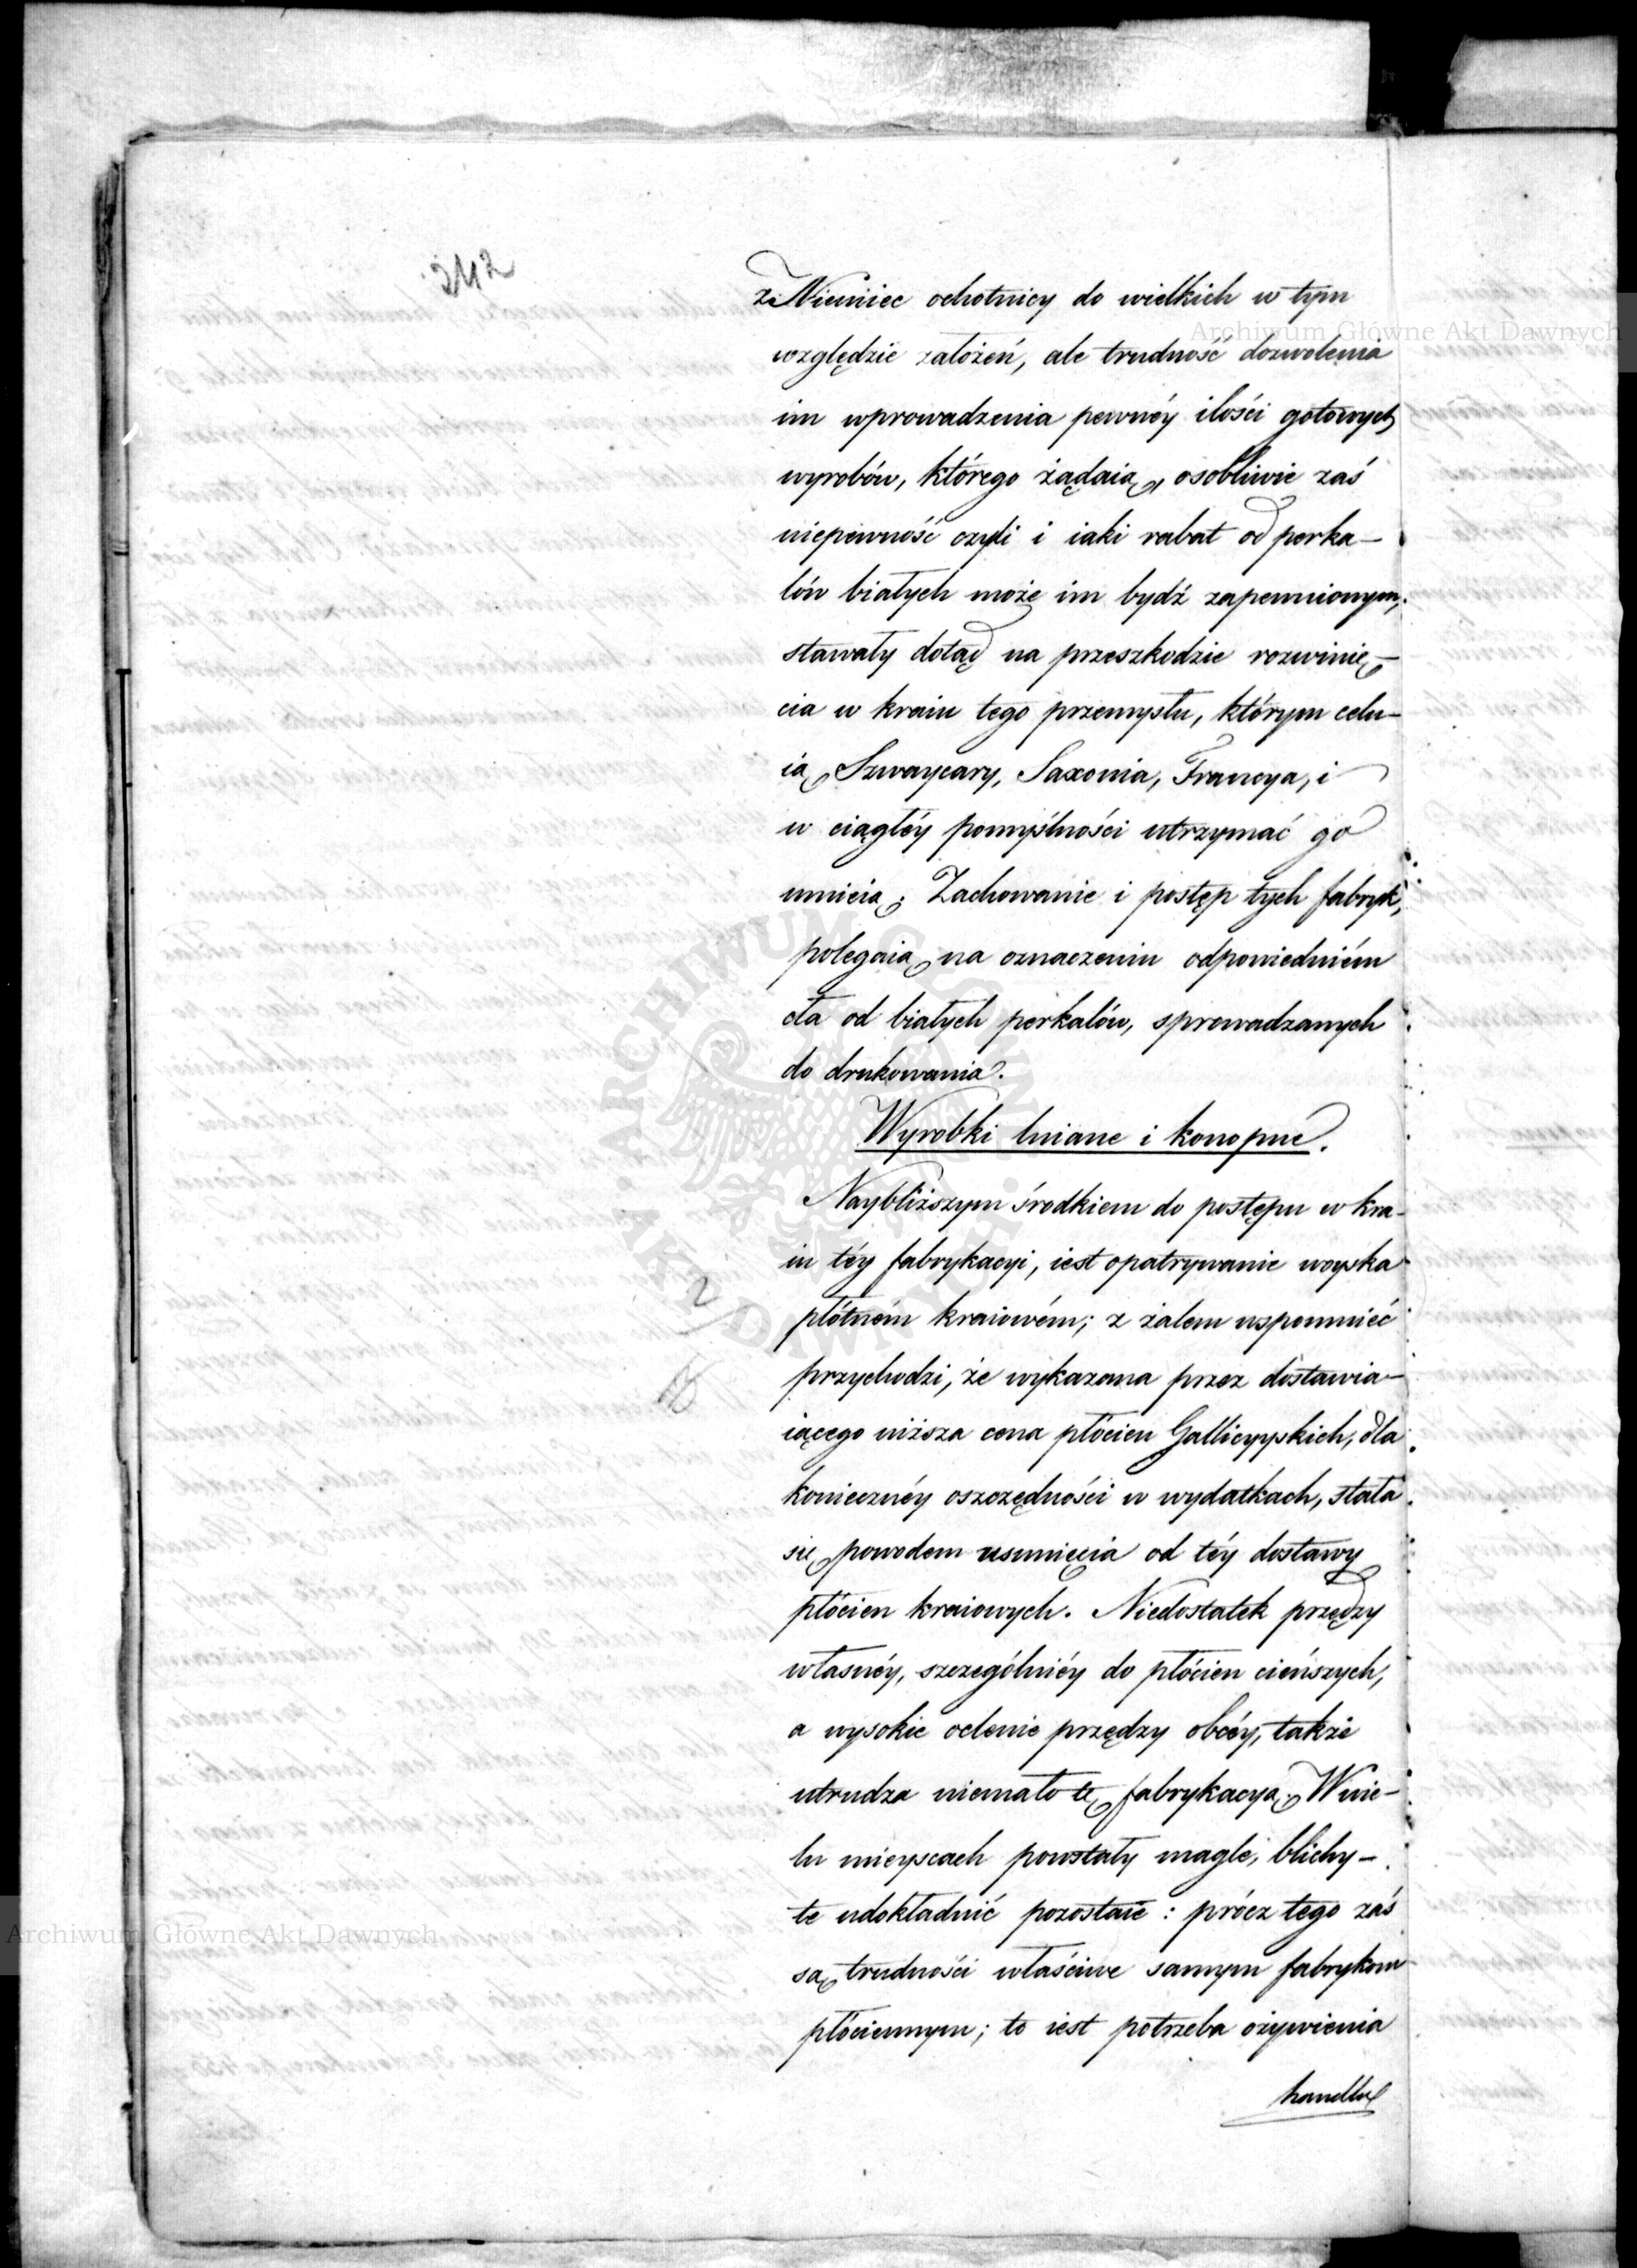 242
z Niemiec ochotnicy do wielkich w tym
względzie założeń, ale trudność dozwolenia
im wprowadzenia pewnéy ilości gotowych
wyrobów, którego żądaią, osobliwie zaś
niepewność czyli i iaki rabat od perka-
lów białych może im bydź zapewnionym,
stawały dotąd na przeszkodzie rozwinię-
cia w kraiu tego przemysłu, którym celu-
ią Szwaycary, Saxonia, Francya, i
w ciągłéy pomyślności utrzymać go
umieią. Zachowanie i postęp tych fabryk,
polegaią na oznaczeniu odpowiedniém
cła od białych perkalów, sprowadzanych
do drukowania.
Wyrobki lniane i konopne.
Naybliższym środkiem do postępu w kra-
iu téy fabrykacyi, iest opatrywanie woyska
płótnem kraiowém; z żalem wspomnieć
przychodzi, że wykazana przez dostawia-
iącego niższa cena płócien Gallicyyskich, dla
koniecznéy oszczędności w wydatkach, stała
się powodem usunięcia od téy dostawy
płócien kraiowych. Niedostatek przędzy
własnéy, szczególniéy do płócien cieńszych,
a wysokie oclenie przędzy obcéy, także
utrudza niemało tę fabrykacyą. W wie-
lu mieyscach powstały magle, blichy-
te udokładnić pozostaie: prócz tego zaś
są trudności właściwe samym fabrykom
płóciennym; to iest potrzeba ożywienia
handlu
Archiwum Główne Akt Dawnych
Archiwum Główne Akt Dawnych